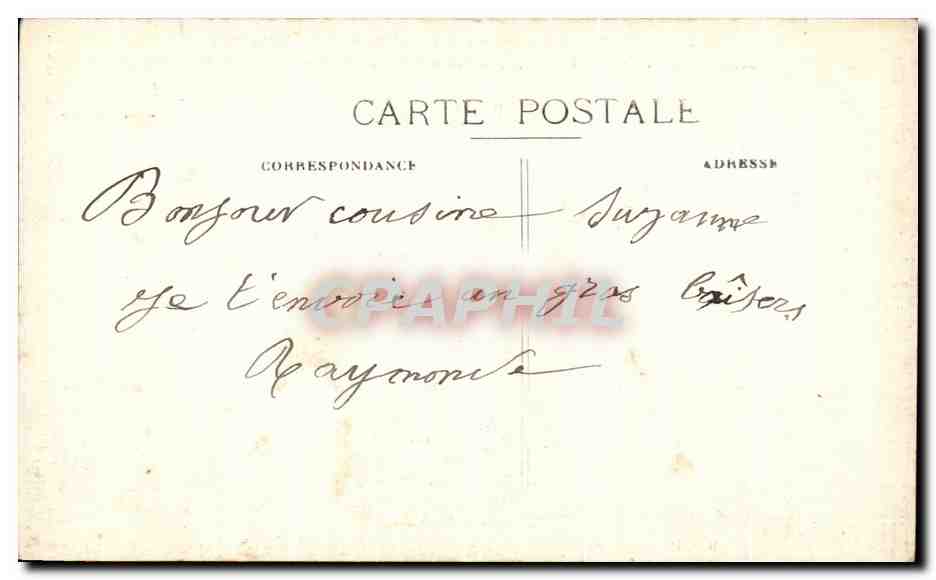 CARTE POSTALE
CORRESPONDANCE ADRESSE
Bonjour cousine Suzanne
Je t'envoie un gros baîsers
Raymonde
CPAPHIL